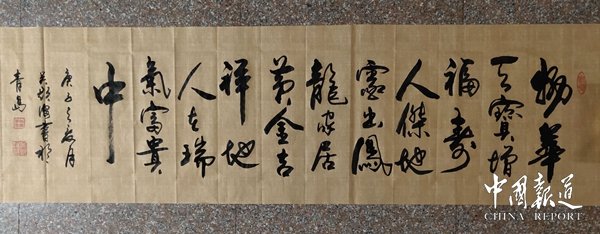 物華
天寶增
福壽
人傑地
靈出鳳
龍家居
第金吉
祥地
人在瑞
氣富貴
中
庚子之月
書於
青島
中國報道
CHINA REPORT